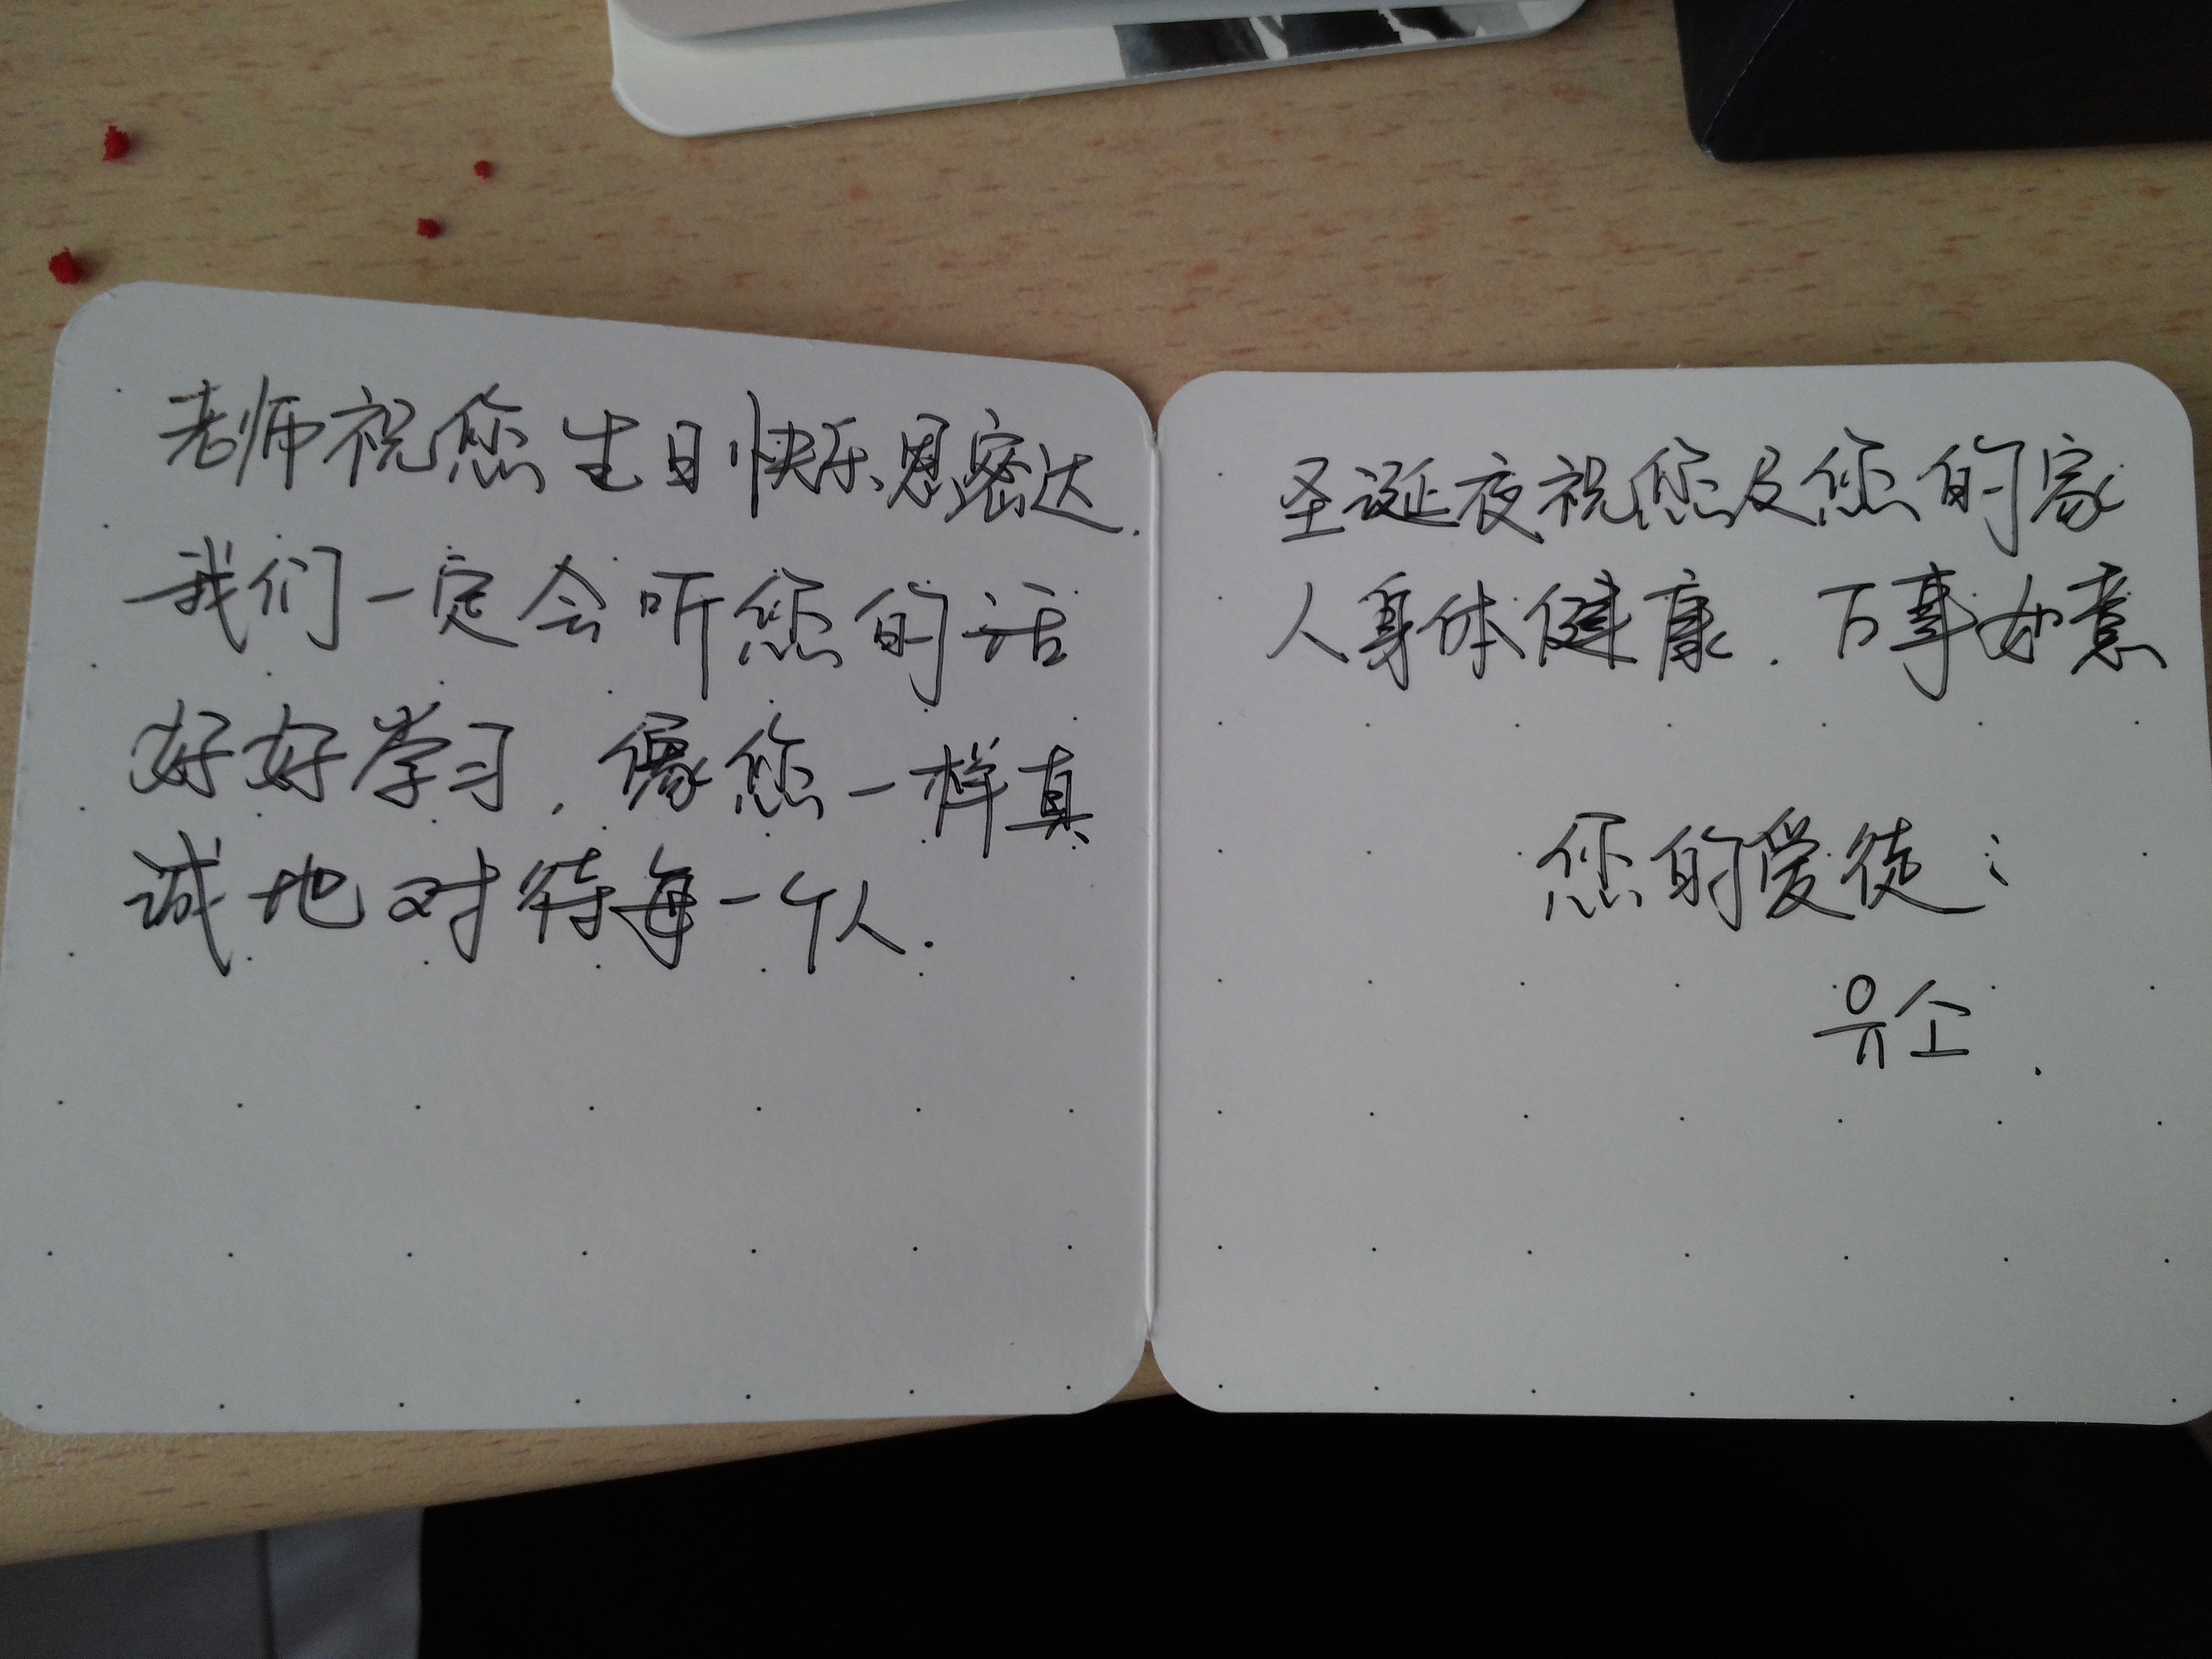 老师祝您生日快乐思密达.
我们一定会听您的话
好好学习,像您一样真
诚地对待每一个人.
圣诞夜祝您及您的家
人身体健康.万事如意
您的爱徒:
유소.